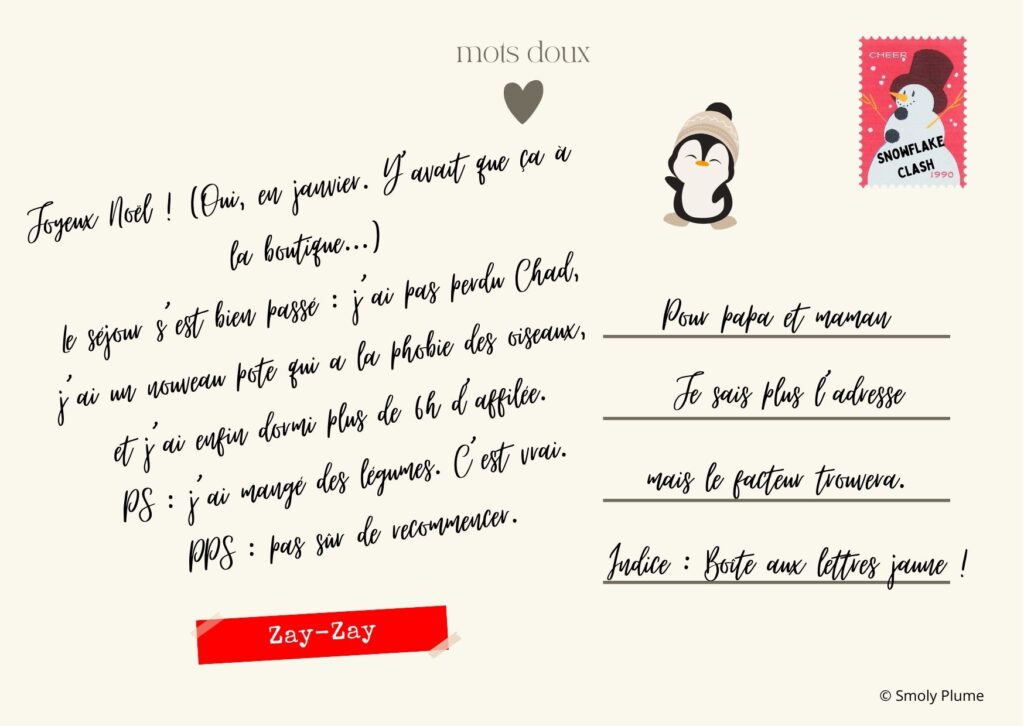 mots doux
CHEER
SNOWFLAKE
CLASH
1990
Joyeux Noël ! (Oui, en janvier. Y'avait que ça à
la boutique...)
Le séjour s'est bien passé : j'ai pas perdu Chad,
j'ai un nouveau pote qui a la phobie des oiseaux,
et j'ai enfin dormi plus de 6h d'affilée.
PS : j'ai mangé des légumes. C'est vrai.
PPS : pas sûr de recommencer.
Zay-Zay
Pour papa et maman
Je sais plus l'adresse
mais le facteur trouvera.
Indice : Boîte aux lettres jaune !
© Smoly Plume